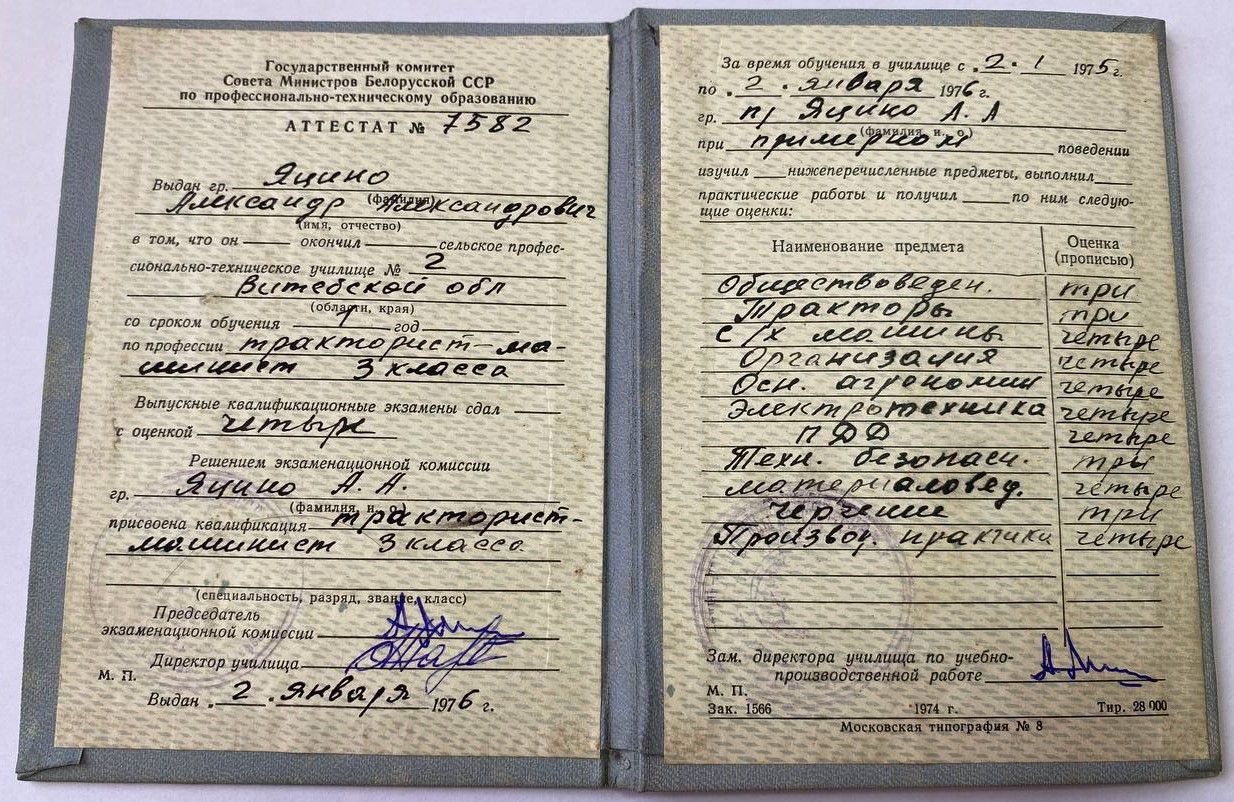 Государственный комитет
Совета Министров Белорусской ССР
по профессионально-техническому образованию
АТТЕСТАТ № 7582
Выдан гр. Яцино
(фамилия)
Александр Александрович
(имя, отчество)
в том, что он окончил сельское профес-
сионально-техническое училище № 2
Витебской обл
(области, края)
со сроком обучения 1 год
по профессии тракторист-ма-
шинист 3 класса
Выпускные квалификационные экзамены сдал
с оценкой четыре
Решением экзаменационной комиссии
гр. Яцино А. А.
(фамилия, и. о.)
присвоена квалификация тракторист-
машинист 3 класса
(специальность, разряд, звание, класс)
Председатель
экзаменационной комиссии
Директор училища
М. П.
Выдан „2. января 1976 г.
За время обучения в училище с „2. 1 1975 г.
по „2. января 1976 г.
гр. Яцино А. А
(фамилия, и., о.)
при примерном поведении
изучил нижеперечисленные предметы, выполнил
практические работы и получил по ним следую-
щие оценки:
Наименование предмета Оценка (прописью)
Обществоведен. три
Тракторы три
С/х машины четыре
Организация четыре
Осн. агрономии четыре
Электротехника четыре
ПДД четыре
Техн. безопасн. три
материаловед. четыре
черчение три
Производ. практика четыре
Зам. директора училища по учебно-
производственной работе
М. П.
Зак. 1566 1974 г. Тир. 28 000
Московская типография № 8